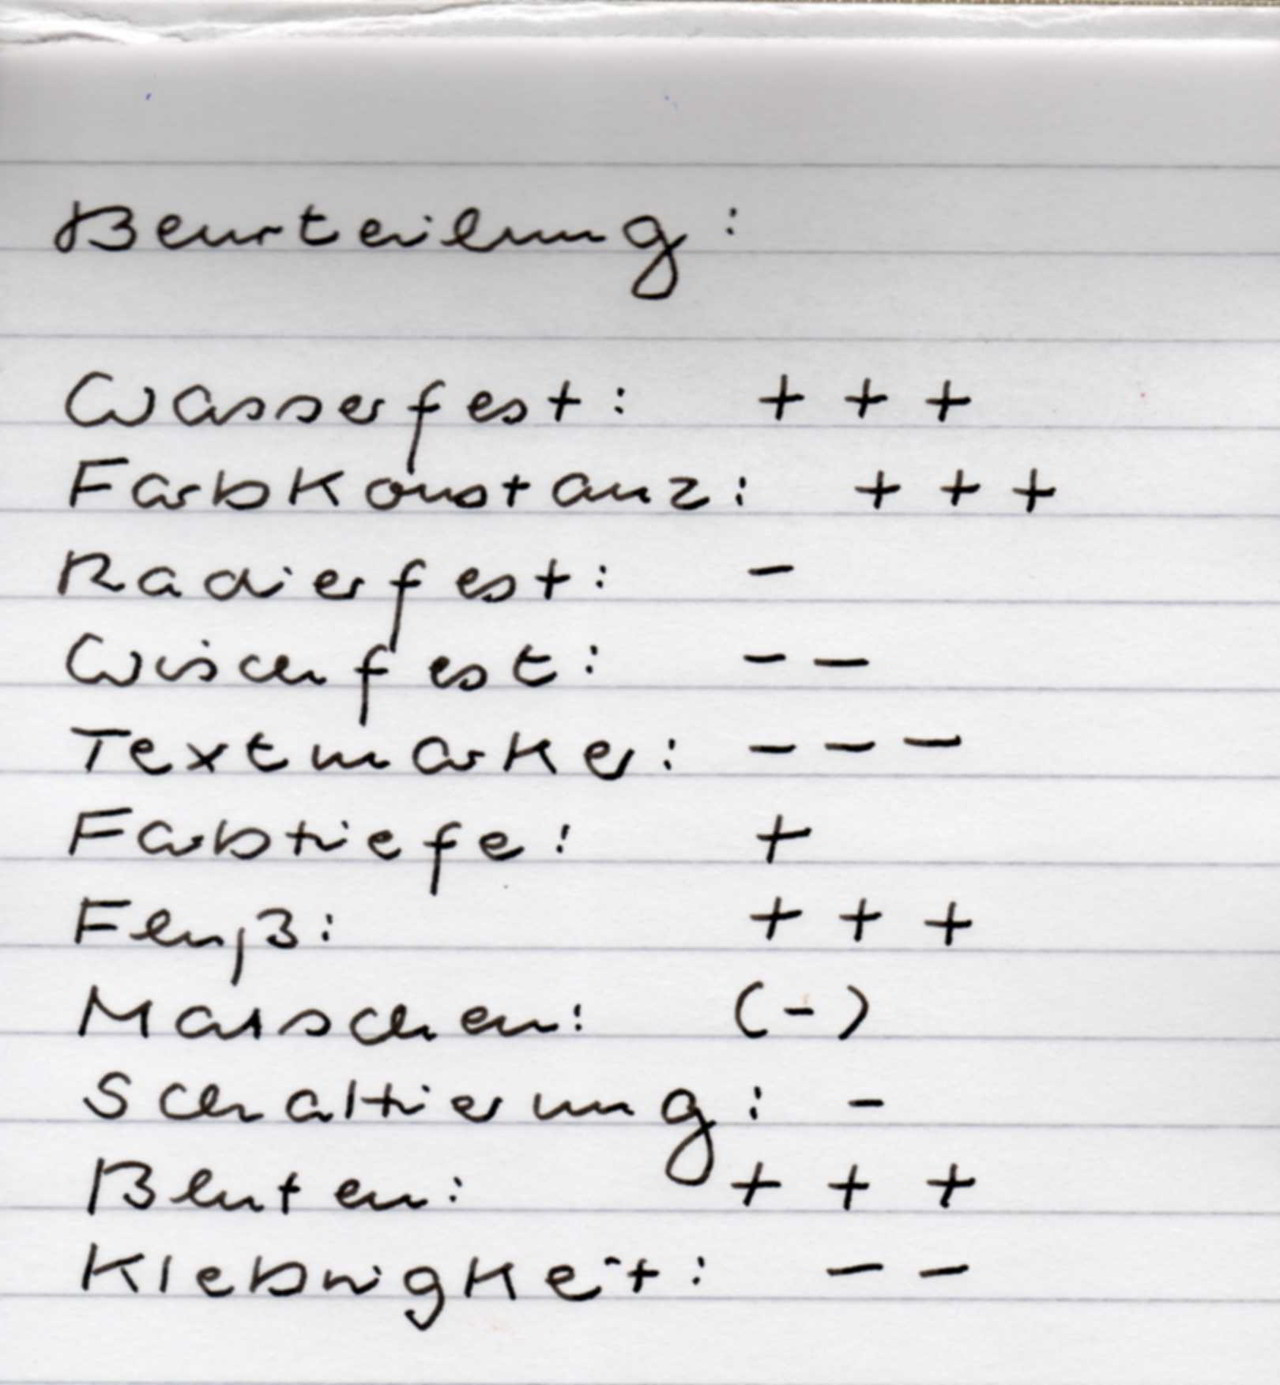 Beurteilung:
Wasserfest: + + +
Farbkonstanz: + + +
Radierfest: -
Wischfest: - -
Textmarker: - - -
Farbtiefe: +
Fluß: + + +
Matschen: (-)
Schattierung: -
Bluten: + + +
Klebrigkeit: - -